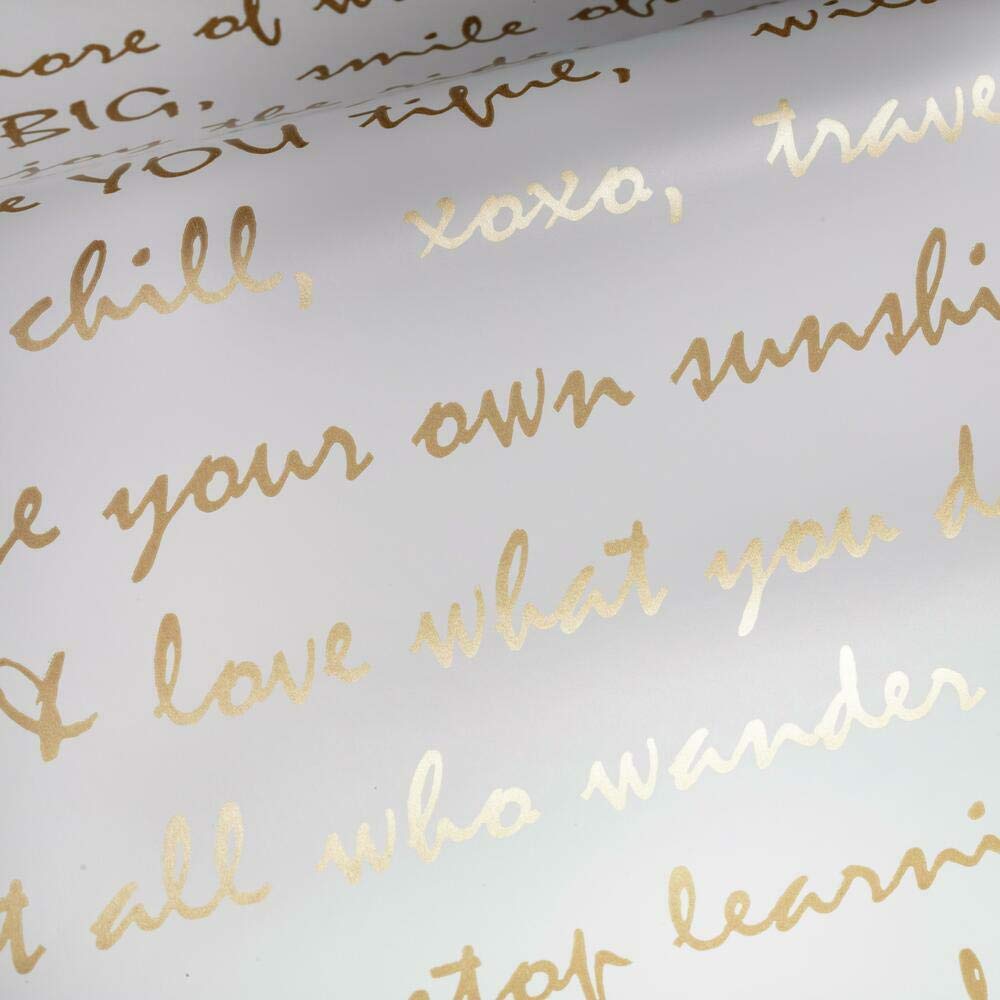 more of
BIG, smile
YOU tique,
chill, xoxo, trave
e your own sunshi
& love what you d
t all who wander
stop learni